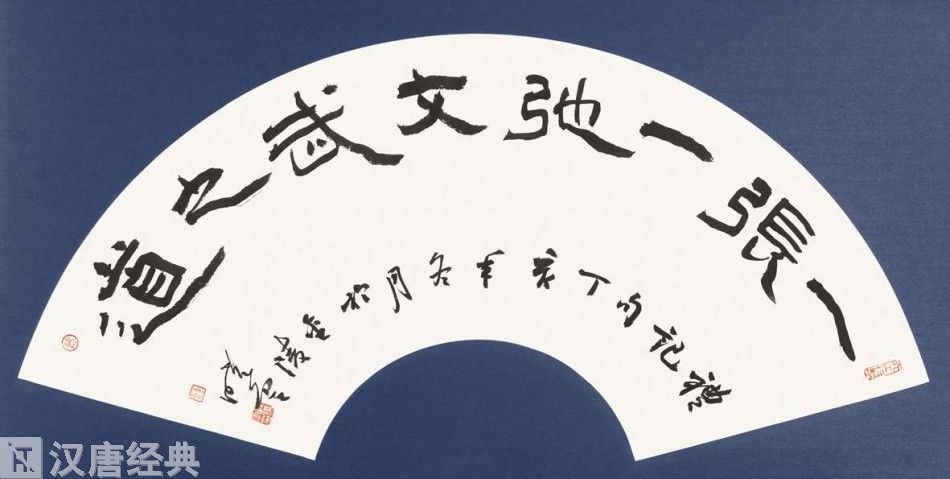 一張一弛文武之道
禮記句丁亥年冬月於金陵
汉唐经典